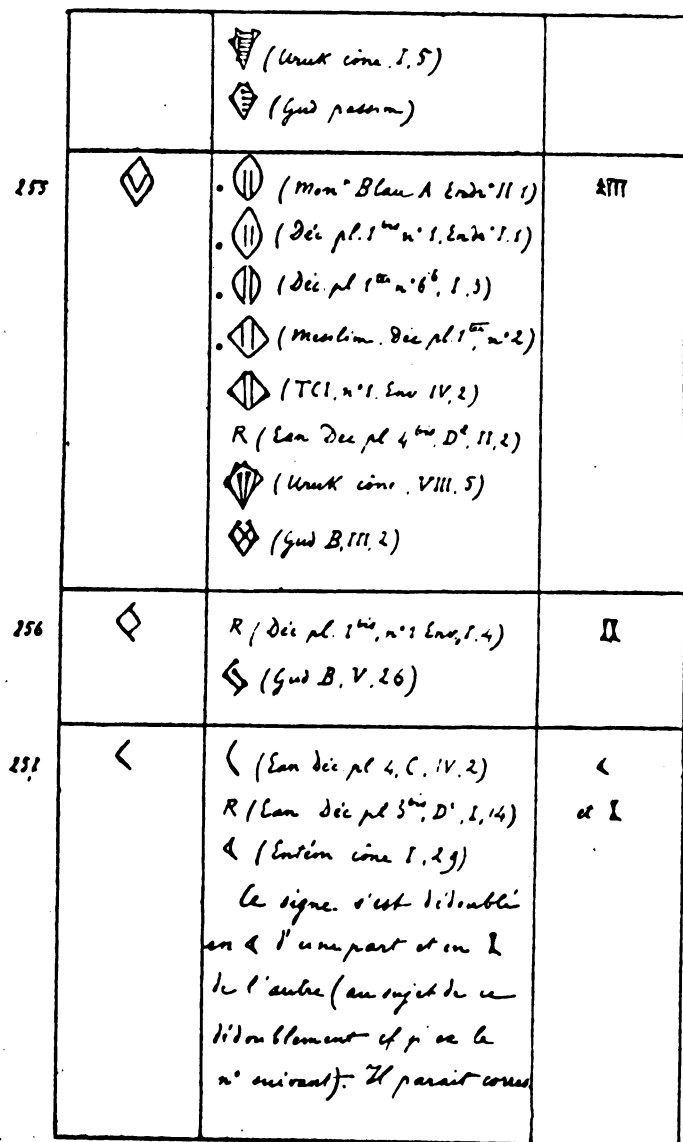 (Uruk cône. I, 5)
(Gud passim)
255
(Mon^t Blau A Endr^t II 1)
(Déc pl. 1^bis n° 1, Endr^t I.1)
(Déc. pl 1^ter n° 6^b, I, 3)
(Mesilim. Déc pl. 1^ter, n° 2)
(TCI, n° 1. Env IV, 2)
R (Ean Déc pl 4^bis, D^2, II, 2)
(Uruk cône, VIII. 5)
(Gud B, III, 2)
256
R (Déc pl. 1^bis, n° 1 Env, I. 4)
(Gud B, V, 26)
(Ean Déc pl 4, C, IV, 2)
R (Ean Déc pl 3^bis, D^1, I, 14)
et
(Entém cône I, 29)
Ce signe s'est dédoublé
en d'une part et en
de l'autre (au sujet de ce
dédoublement cf le
n° suivant). Il parait corres